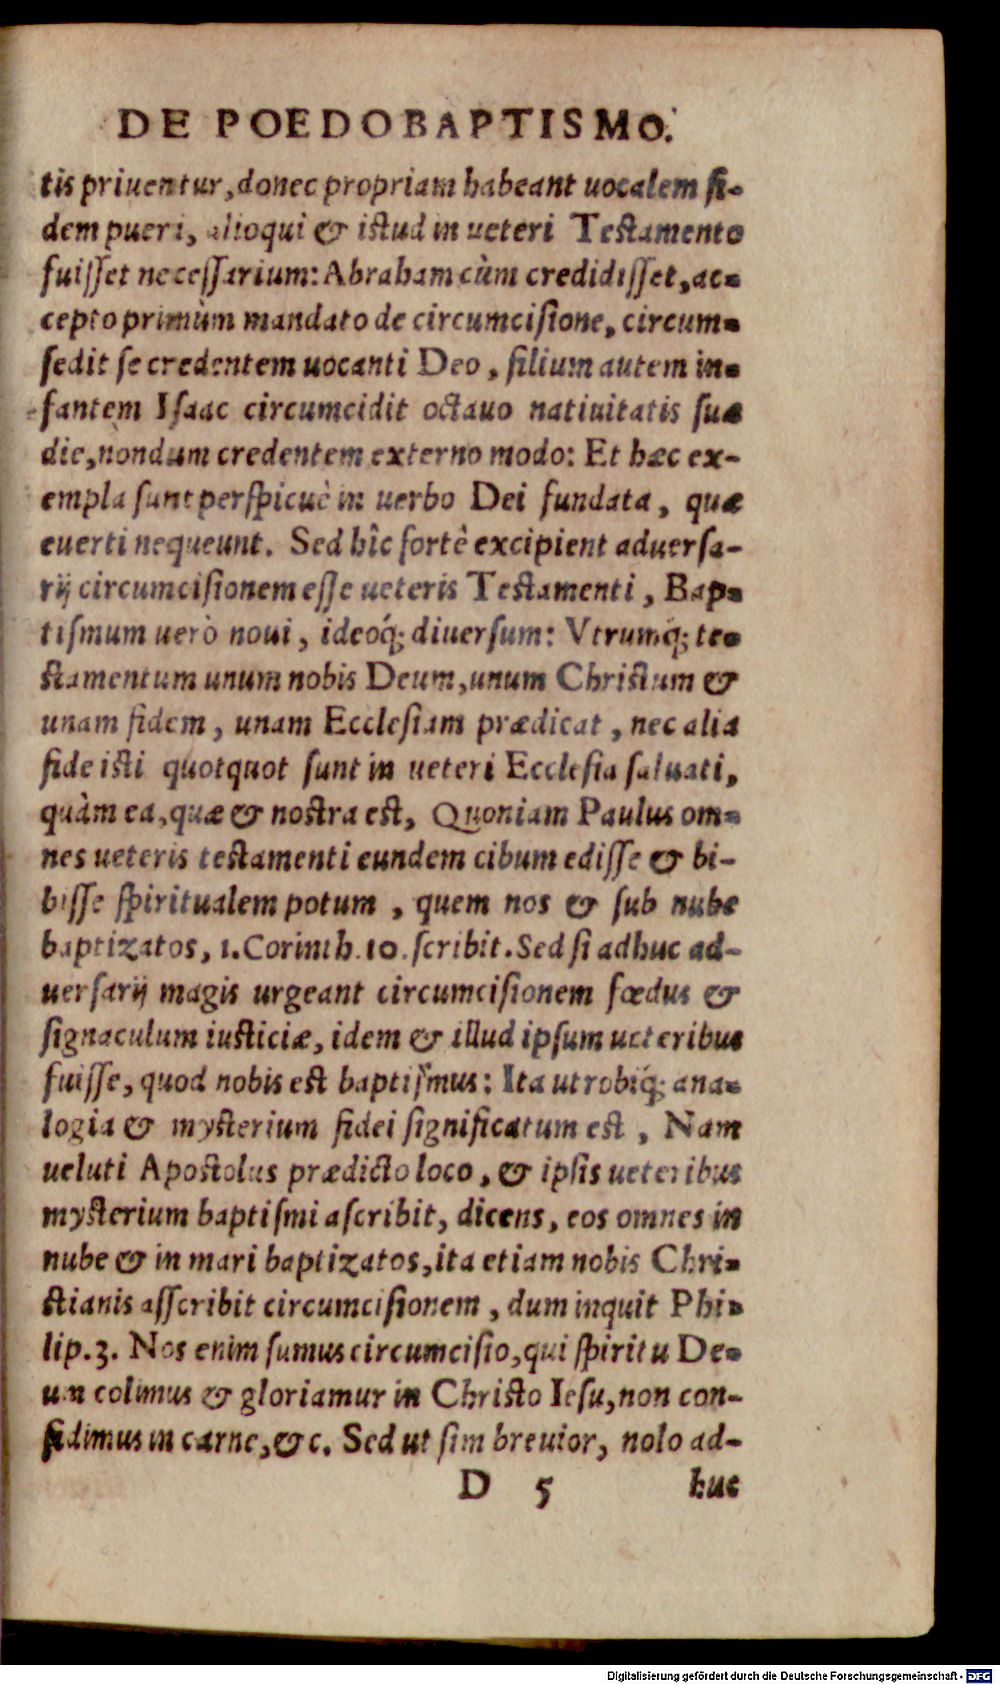 DE POEDOBAPTISMO.
tis priuentur, donec propriam habeant uocalem fi-
dem pueri, alioqui & istud in ueteri Testamento
fuisset necessarium: Abraham cùm credidisset, ac-
cepto primùm mandato de circumcisione, circum-
sedit se credentem uocanti Deo, filium autem in-
fantem Isaac circumcidit octauo natiuitatis suæ
die, nondum credentem externo modo: Et hæc ex-
empla sunt perspicuè in uerbo Dei fundata, quæ
euerti nequeunt. Sed hîc fortê excipient aduersa-
rij circumcisionem esse ueteris Testamenti, Bap-
tismum uerò noui, ideoq́; diuersum: Vtrumq́; te-
stamentum unum nobis Deum, unum Christum &
unam fidem, unam Ecclesiam prædicat, nec alia
fide isti quotquot sunt in ueteri Ecclesia saluati,
quàm ea, quæ & nostra est, Quoniam Paulus om-
nes ueteris testamenti eundem cibum edisse & bi-
bisse spiritualem potum, quem nos & sub nube
baptizatos, 1. Corinth. 10. scribit. Sed si adhuc ad-
uersarij magis urgeant circumcisionem fœdus &
signaculum iusticiæ, idem & illud ipsum ueteribus
fuisse, quod nobis est baptismus: Ita utrobiq́; ana-
logia & mysterium fidei significatum est, Nam
ueluti Apostolus prædicto loco, & ipsis ueteribus
mysterium baptismi ascribit, dicens, eos omnes in
nube & in mari baptizatos, ita etiam nobis Chri-
stianis asscribit circumcisionem, dum inquit Phi-
lip. 3. Nos enim sumus circumcisio, qui spiritu De-
um colimus & gloriamur in Christo Iesu, non con-
fidimus in carne, &c. Sed ut sim breuior, nolo ad-
D 5 huc
Digitalisierung gefördert durch die Deutsche Forschungsgemeinschaft - DFG